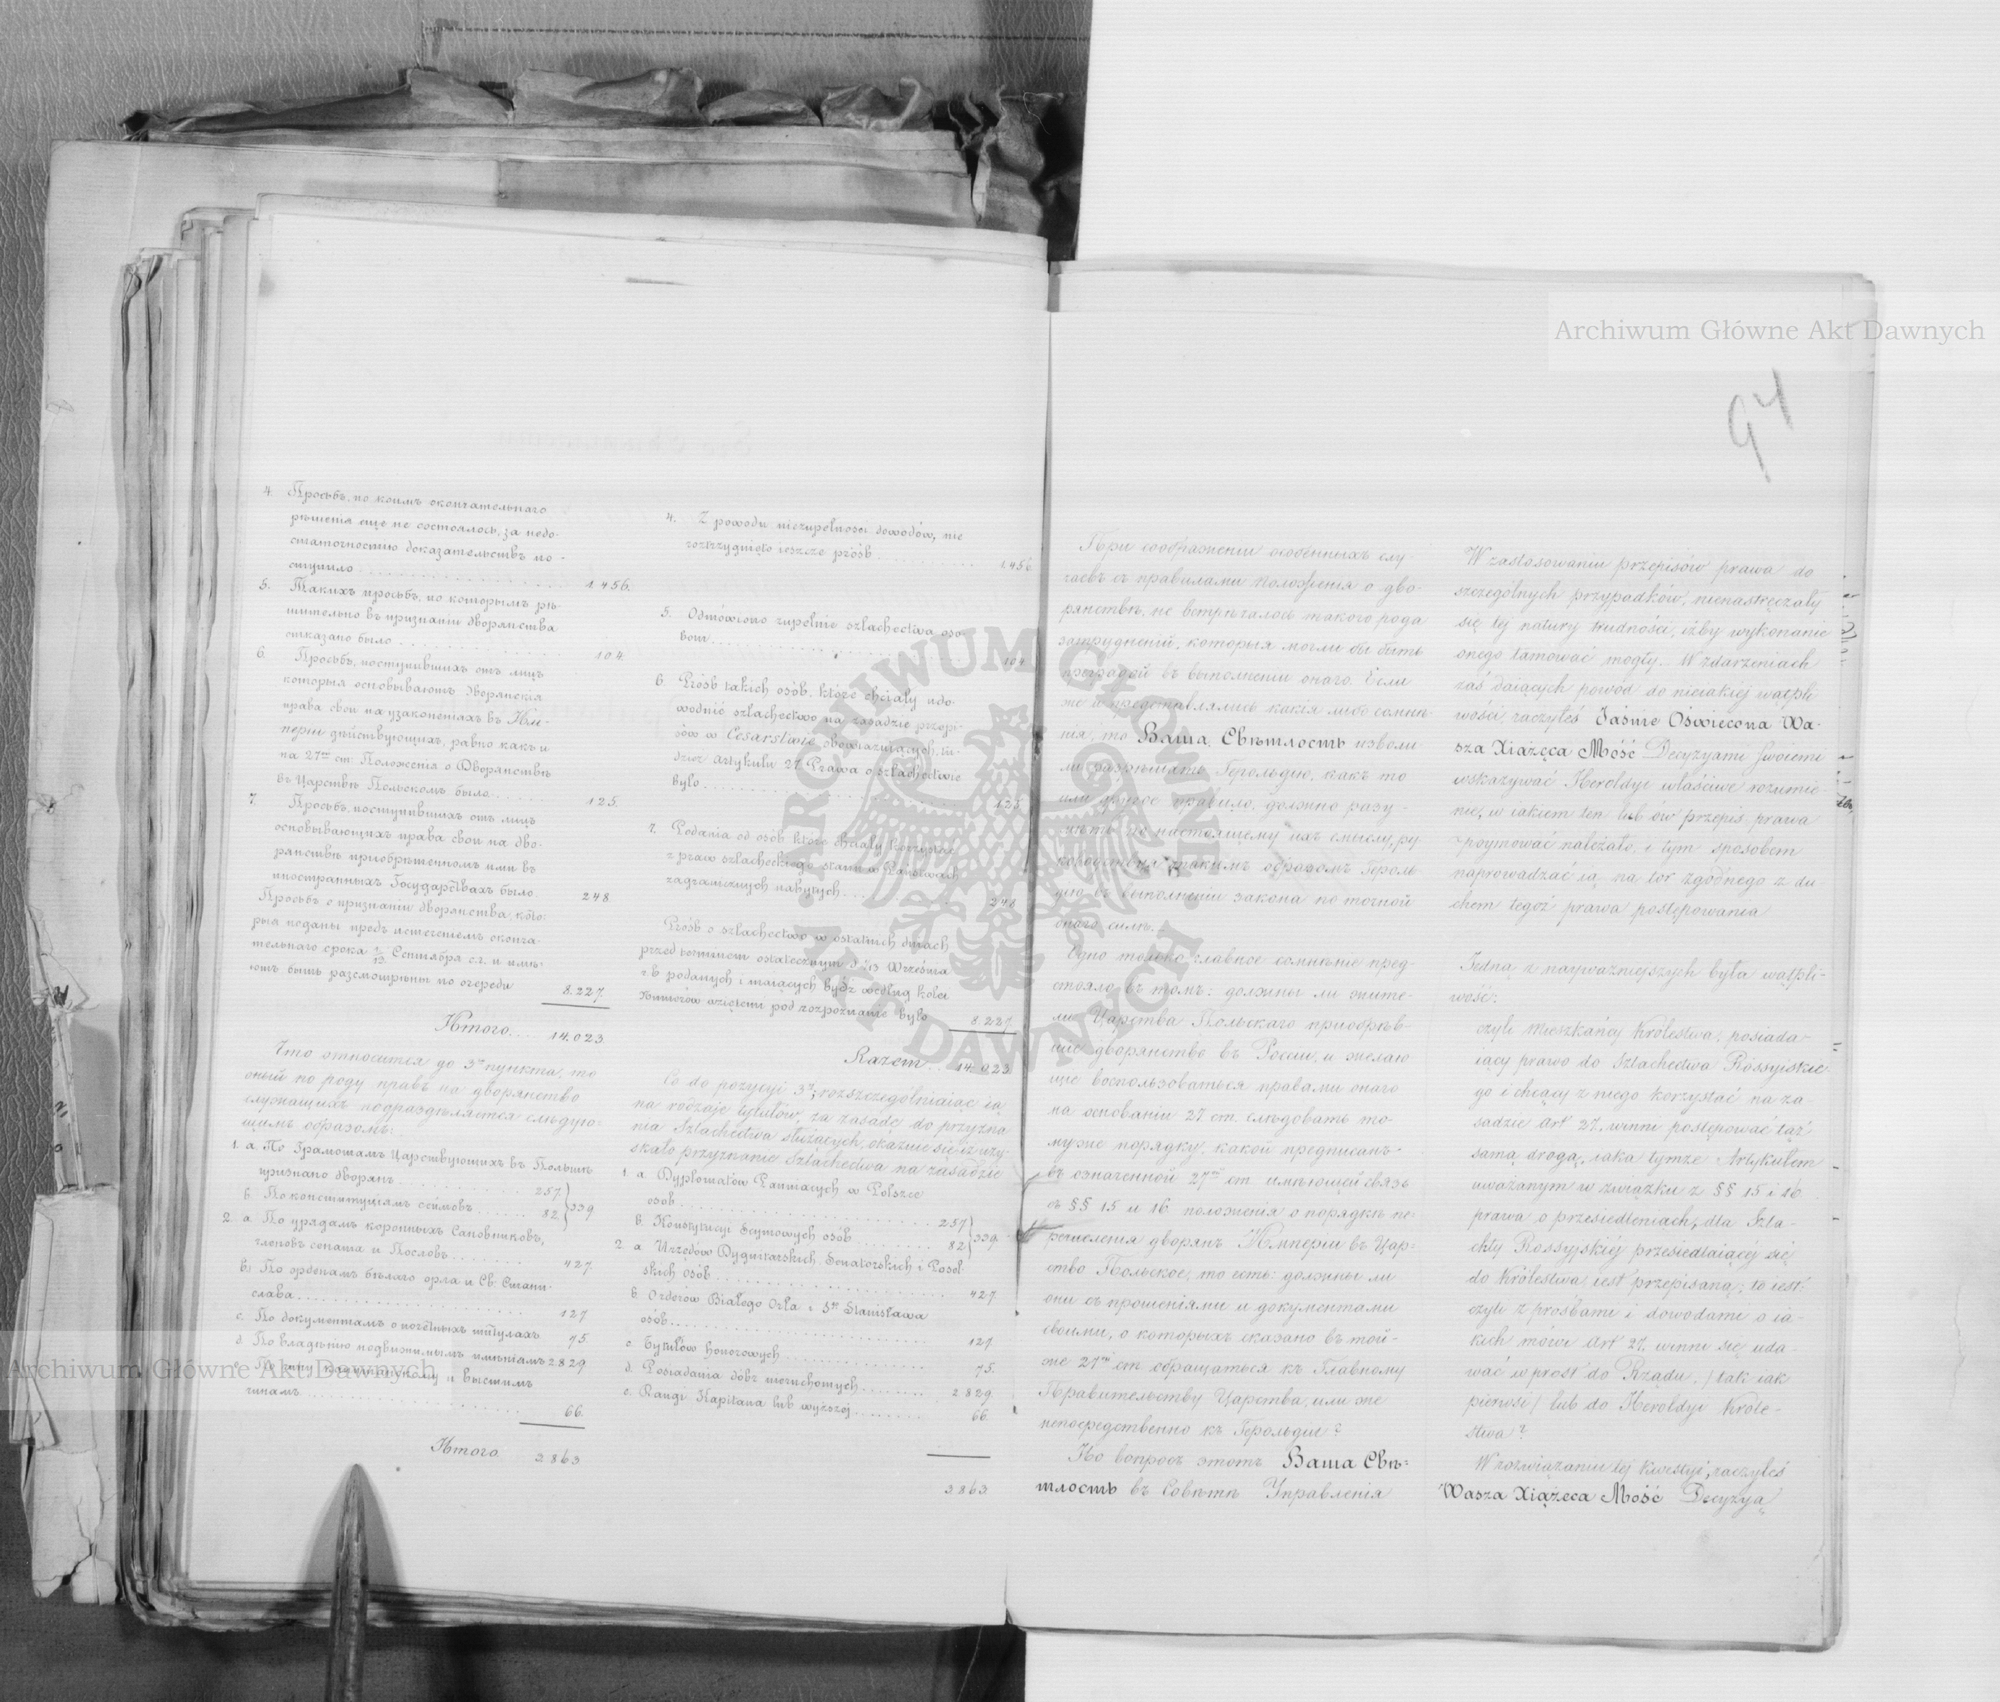 Archiwum Główne Akt Dawnych
94
4. Просьбъ, по коимъ окончательнаго
рѣшенія еще не состоялось, за недо-
статочностію доказательствъ по-
ступило 1456.
5. Такихъ просьбъ, по которымъ рѣ-
шительно въ признаніи дворянства
отказано было 104.
6. Просьбъ, поступившихъ отъ лицъ
которыя основываютъ дворянскія
права свои на узаконеніяхъ въ Им-
періи дѣйствующихъ, равно какъ и
на 27ой ст. Положенія о Дворянствѣ
въ Царствѣ Польскомъ было 125.
7. Просьбъ, поступившихъ отъ лицъ
основывающихъ права свои на дво-
рянствѣ пріобрѣтенномъ ими въ
иностранныхъ Государствахъ было 248.
Просьбъ о признаніи дворянства, кото-
рыя поданы предъ истеченіемъ оконча-
тельнаго срока 1/13 Сентября с.г. и имѣ-
ютъ быть разсмотрены по очереди 8.227.
Итого 14.023
Что относится до 3го пункта, то
оный по роду правъ на дворянство
служащихъ подраздѣляется слѣдую-
щимъ образомъ:
1. а. По Грамотамъ Царствующихъ въ Польшѣ
признано дворянъ 257.
б. По конституціямъ сеймовъ 82 } 339
2 а. По урядамъ коронныхъ Сановниковъ,
членовъ сената и Пословъ 427.
b) По орденамъ бѣлаго орла и Св. Стани-
слава 127
с. По документамъ о почётныхъ титулахъ 75
d. По владѣнію недвижимымъ имѣніямъ 2829.
е. По чину капитанскому и высшимъ
чинамъ 66.
Итого 3863
4. Z powodu niezupełności dowodów, nie
roztrzygnięto ieszcze próśb 1456.
5. Odmówiono zupełnie szlachectwa oso-
bom 104.
6. Próśb takich osób, które chciały udo-
wodnić szlachectwo na zasadzie przepi-
sów w Cesarstwie obowiązuiących, tu-
dzież Artykułu 27 Prawa o szlachectwie
było 125.
7. Podania od osób które chciały korzystać
z praw szlacheckiego stanu w Państwach
zagranicznych nabytych 248.
Próśb o szlachectwo w ostatnich dniach
przed terminem ostatecznym d. 1/13 Września
r.b. podanych i maiących bydź według kolei
Numerów wziętemi pod rozpoznanie było 8.227.
Razem 14.023.
Co do pozycyi 3ej, rozszczególniaiąc ią
na rodzaje tytułów, za zasadę do przyzna-
nia Szlachectwa służących, okazuie się iż uzy-
skało przyznanie Szlachectwa na zasadzie
1 a Dyplomatów Panuiących w Polszce
osób 257
b. Konstytucyi Seymowych osób 82 } 339.
2. a. Urzędów Dygnitarskich Senatorskich i Posel-
skich osób 427.
b. Orderów Białego Orła i Sgo Stanisława
osób 127.
c. Tytułów honorowych 75.
d. Posiadania dóbr nieruchomych 2829.
e. Rangi Kapitana lub wyższéj 66.
3863.
При соображеніи особенныхъ слу-
чаевъ съ правилами положенія о дво-
рянствѣ, не встрѣчалось такого рода
затрудненій, которыя могли бы быть
преградой въ выполненіи онаго. Если
же и представлялись какія либо сомнѣ-
нія, то Ваша Свѣтлость изволи-
ли разрѣшать Герольдію, какъ то
или другое правило, должно разу-
мѣть по настоящему ихъ смыслу, ру-
ководствуя такимъ образомъ Героль-
дію въ выполненіи закона по точной
онаго силѣ.
Одно только главное сомнѣніе пред-
стояло въ томъ: должны ли жите-
ли Царства Польскаго пріобрѣв-
шіе дворянство въ Россіи, и желаю-
щіе воспользоваться правами онаго
на основаніи 27 ст. слѣдовать то-
му же порядку, какой предписанъ
въ означенной 27ой ст. имѣющей связь
съ §§ 15 и 16. положенія о порядкѣ пе-
реселенія дворянъ Имперіи въ Цар-
ство Польское, то есть: должны ли
они съ прошеніями и документами
своими, о которыхъ сказано въ той-
же 27ой ст. обращаться къ Главному
Правительству Царства, или же
непосредственно къ Герольдіи?
Но вопросъ этотъ Ваша Свѣ-
тлость въ Совѣтѣ Управленія
W zastosowaniu przepisów prawa do
szczególnych przypadków, nienastręczały
się téj natury trudności, iżby wykonanie
onego tamować mogły. W zdarzeniach
zaś daiących powód do nieiakiéj wątpli-
wości, raczyłeś Jaśnie Oświecona Wa-
sza Xiążęca Mość Decyzyami Swoiemi
wskazywać Heroldyi właściwe rozumie-
nie, w iakiem ten lub ów przepis prawa
poymować należało, i tym sposobem
naprowadzać ią na tor zgodnego z du-
chem tegoż prawa postępowania.
Jedną z nayważnieyszych była wątpli-
wość:
czyli Mieszkańcy Królestwa, posiada-
iący prawo do Szlachectwa Rossyiskie-
go i chcący z niego korzystać na za-
sadzie Art 27, winni postępować tąż
samą drogą, iaka tymże Artykułem
uważanym w związku z §§ 15 i 16
prawa o przesiedleniach, dla Szla-
chty Rossyjskiéj przesiedlaiącéj się
do Królestwa iest przepisaną; to iest:
czyli z prośbami i dowodami o ia-
kich mówi Art 27. winni się uda-
wać wprost do Rządu, /tak iak
pierwsi/ lub do Heroldyi Króle-
stwa?
W rozwiązaniu téj kwestyi, raczyłeś
Wasza Xiążęca Mość Decyzyą
Archiwum Główne Akt Dawnych
ARCHIWUM GŁÓWNE AKT DAWNYCH